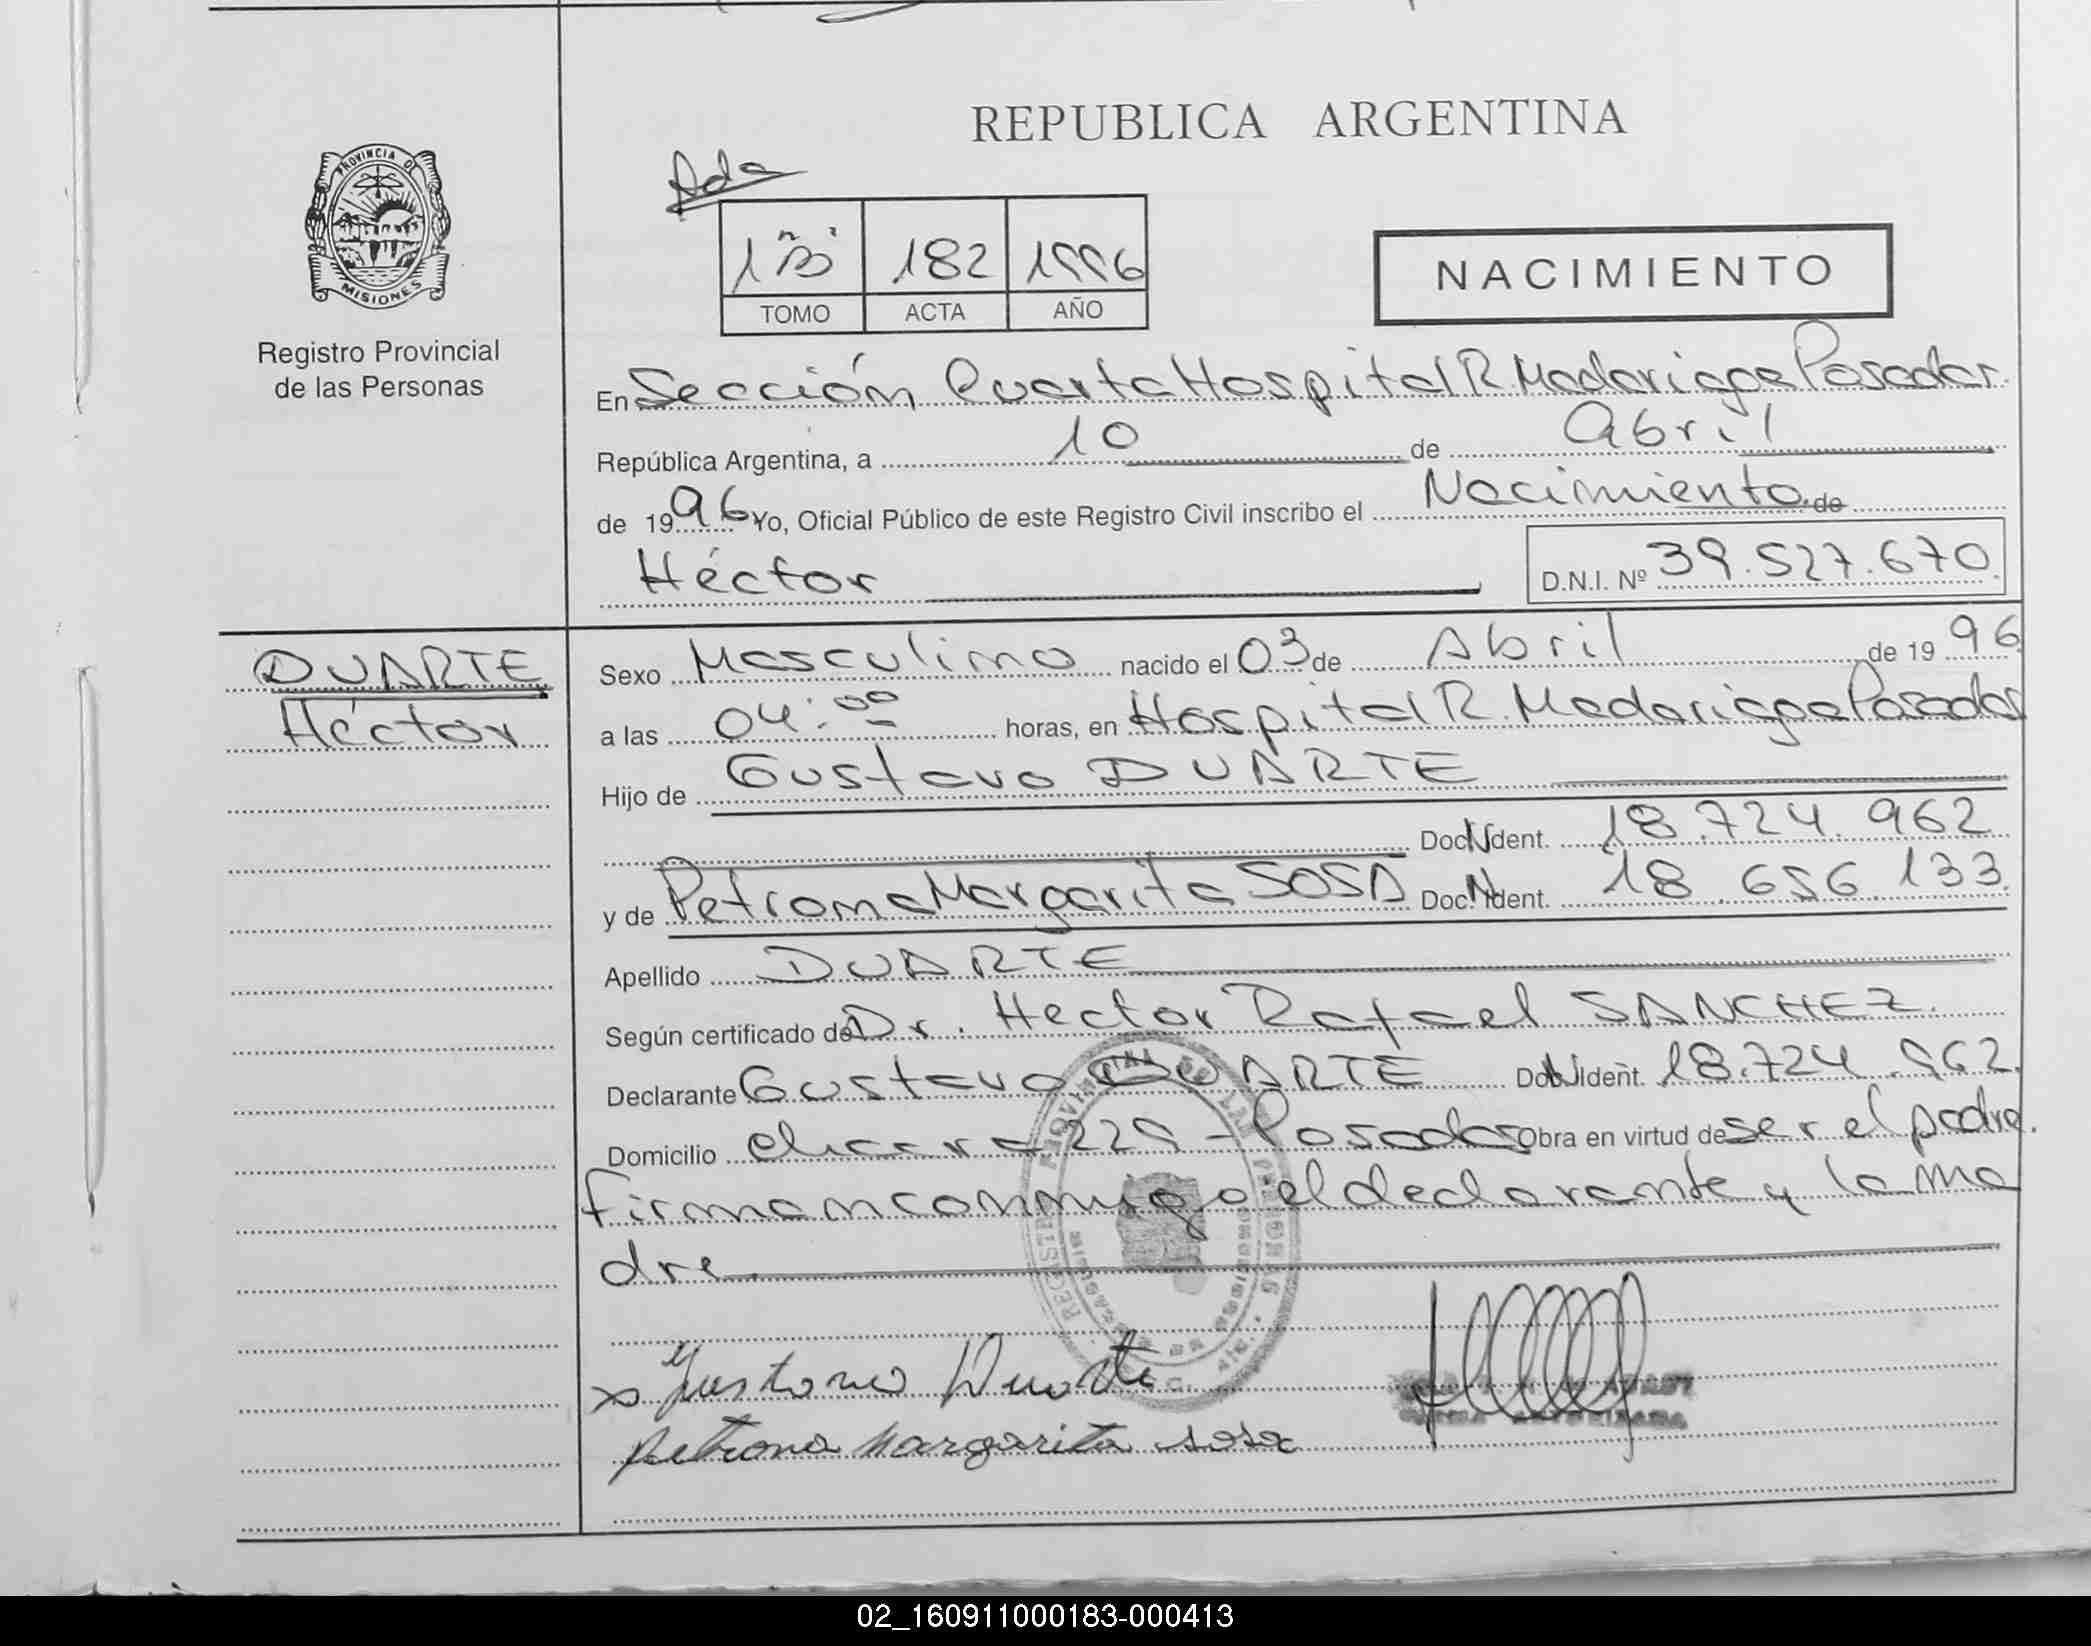 REPUBLICA ARGENTINA
PROVINCIA DE
MISIONES
Registro Provincial
de las Personas
Ada
1 "B" 182 1996
TOMO ACTA AÑO
NACIMIENTO
En Sección Cuarta Hospital R. Madariaga Posadas.
República Argentina, a 10 de abril
de 1996 Yo, Oficial Público de este Registro Civil inscribo el Nacimiento de
Héctor
D.N.I. Nº 39.527.670
DUARTE
Héctor
Sexo Masculino nacido el 03 de Abril de 1996
a las 04:00 horas, en Hospital R. Madariaga Posadas
Hijo de Gustavo DUARTE
Doc. N Ident. 18.724.962
y de Petrona Margarita SOSA Doc. N Ident. 18.656.133
Apellido DUARTE
Según certificado de Dr. Hector Rafael SANCHEZ.
Declarante Gustavo DUARTE Doc. N Ident. 18.724.962
Domicilio chacra 229 - Posadas Obra en virtud de ser el padre.
firman conmigo el declarante y la ma
dre.
Gustavo Duarte
petrona Margarita sosa
02_160911000183-000413